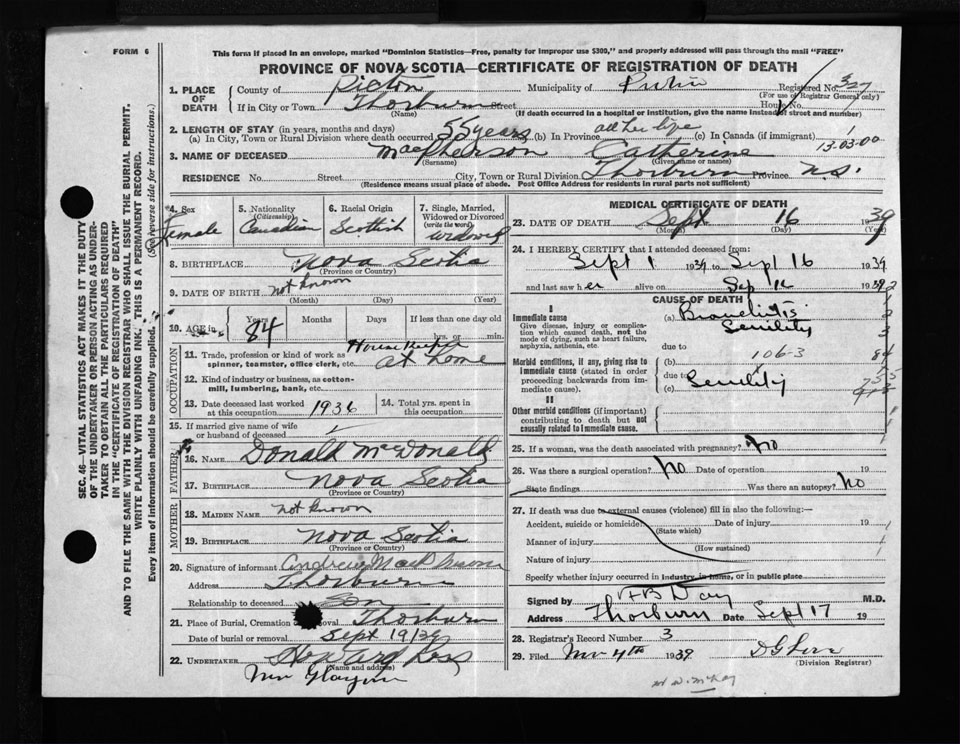 FORM 6
This form if placed in an envelope, marked "Dominion Statistics—Free, penalty for improper use $300," and properly addressed will pass through the mail "FREE"
PROVINCE OF NOVA SCOTIA—CERTIFICATE OF REGISTRATION OF DEATH
1. PLACE OF DEATH County of Pictou Municipality of Pictou Registered No. 327
(For use of Registrar General only)
If in City or Town Thorburn Street House No.
(Name) (If death occurred in a hospital or institution, give the name instead of street and number)
2. LENGTH OF STAY (in years, months and days)
(a) In City, Town or Rural Division where death occurred 55 years (b) In Province all her life (c) In Canada (if immigrant)
13-03-00
3. NAME OF DECEASED MacPherson Catherine
(Surname) (Given name or names)
RESIDENCE No. Street City, Town or Rural Division Thorburn Province N.S.
(Residence means usual place of abode. Post Office Address for residents in rural parts not sufficient)
4. Sex Female
5. Nationality (Citizenship) Canadian
6. Racial Origin Scottish
7. Single, Married, Widowed or Divorced (write the word) widowed
8. BIRTHPLACE Nova Scotia
(Province or Country)
9. DATE OF BIRTH not known
(Month) (Day) (Year)
10. AGE in Years Months Days If less than one day old
84 hrs. or min.
OCCUPATION
11. Trade, profession or kind of work as spinner, teamster, office clerk, etc. House keeper at home
12. Kind of industry or business, as cotton-mill, lumbering, bank, etc.
13. Date deceased last worked at this occupation 1936
14. Total yrs. spent in this occupation
15. If married give name of wife or husband of deceased
FATHER
16. Name Donald McDonald
17. Birthplace Nova Scotia
(Province or Country)
MOTHER
18. Maiden Name not known
19. Birthplace Nova Scotia
(Province or Country)
20. Signature of informant Andrew MacPherson
Address Thorburn
Relationship to deceased Son
21. Place of Burial, Cremation Thorburn
Date of burial or removal Sept 19/39
22. Undertaker
(Name and address)
New Glasgow
MEDICAL CERTIFICATE OF DEATH
23. DATE OF DEATH Sept 16 1939
(Month) (Day)
24. I HEREBY CERTIFY that I attended deceased from:
Sept 1 1939 to Sept 16 1939
and last saw her alive on Sep 16 1939
CAUSE OF DEATH
I
Immediate cause (a) Bronchitis
Senility
Give disease, injury or complication which caused death, not the mode of dying, such as heart failure, asphyxia, asthenia, etc.
due to
(b) 106-3
Morbid conditions, if any, giving rise to immediate cause (stated in order proceeding backwards from immediate cause).
due to
(c) Senility
II
Other morbid conditions (if important) contributing to death but not causally related to immediate cause.
25. If a woman, was the death associated with pregnancy? No
26. Was there a surgical operation? No Date of operation 19
State findings Was there an autopsy? No
27. If death was due to external causes (violence) fill in also the following:—
Accident, suicide or homicide? Date of injury 19
(State which)
Manner of injury
(How sustained)
Nature of injury
Specify whether injury occurred in industry, in home, or in public place
Signed by M.D.
Address Thorburn Date Sept 17 19
28. Registrar's Record Number 3
29. Filed Nov 4th 1939
(Division Registrar)
SEC. 46—VITAL STATISTICS ACT MAKES IT THE DUTY
OF THE UNDERTAKER OR PERSON ACTING AS UNDER-
TAKER TO OBTAIN ALL THE PARTICULARS REQUIRED
IN THE "CERTIFICATE OF REGISTRATION OF DEATH"
AND TO FILE THE SAME WITH THE DIVISION REGISTRAR WHO SHALL ISSUE THE BURIAL PERMIT.
WRITE PLAINLY WITH UNFADING INK. THIS IS A PERMANENT RECORD.
Every item of information should be carefully supplied. (See reverse side for instructions.)